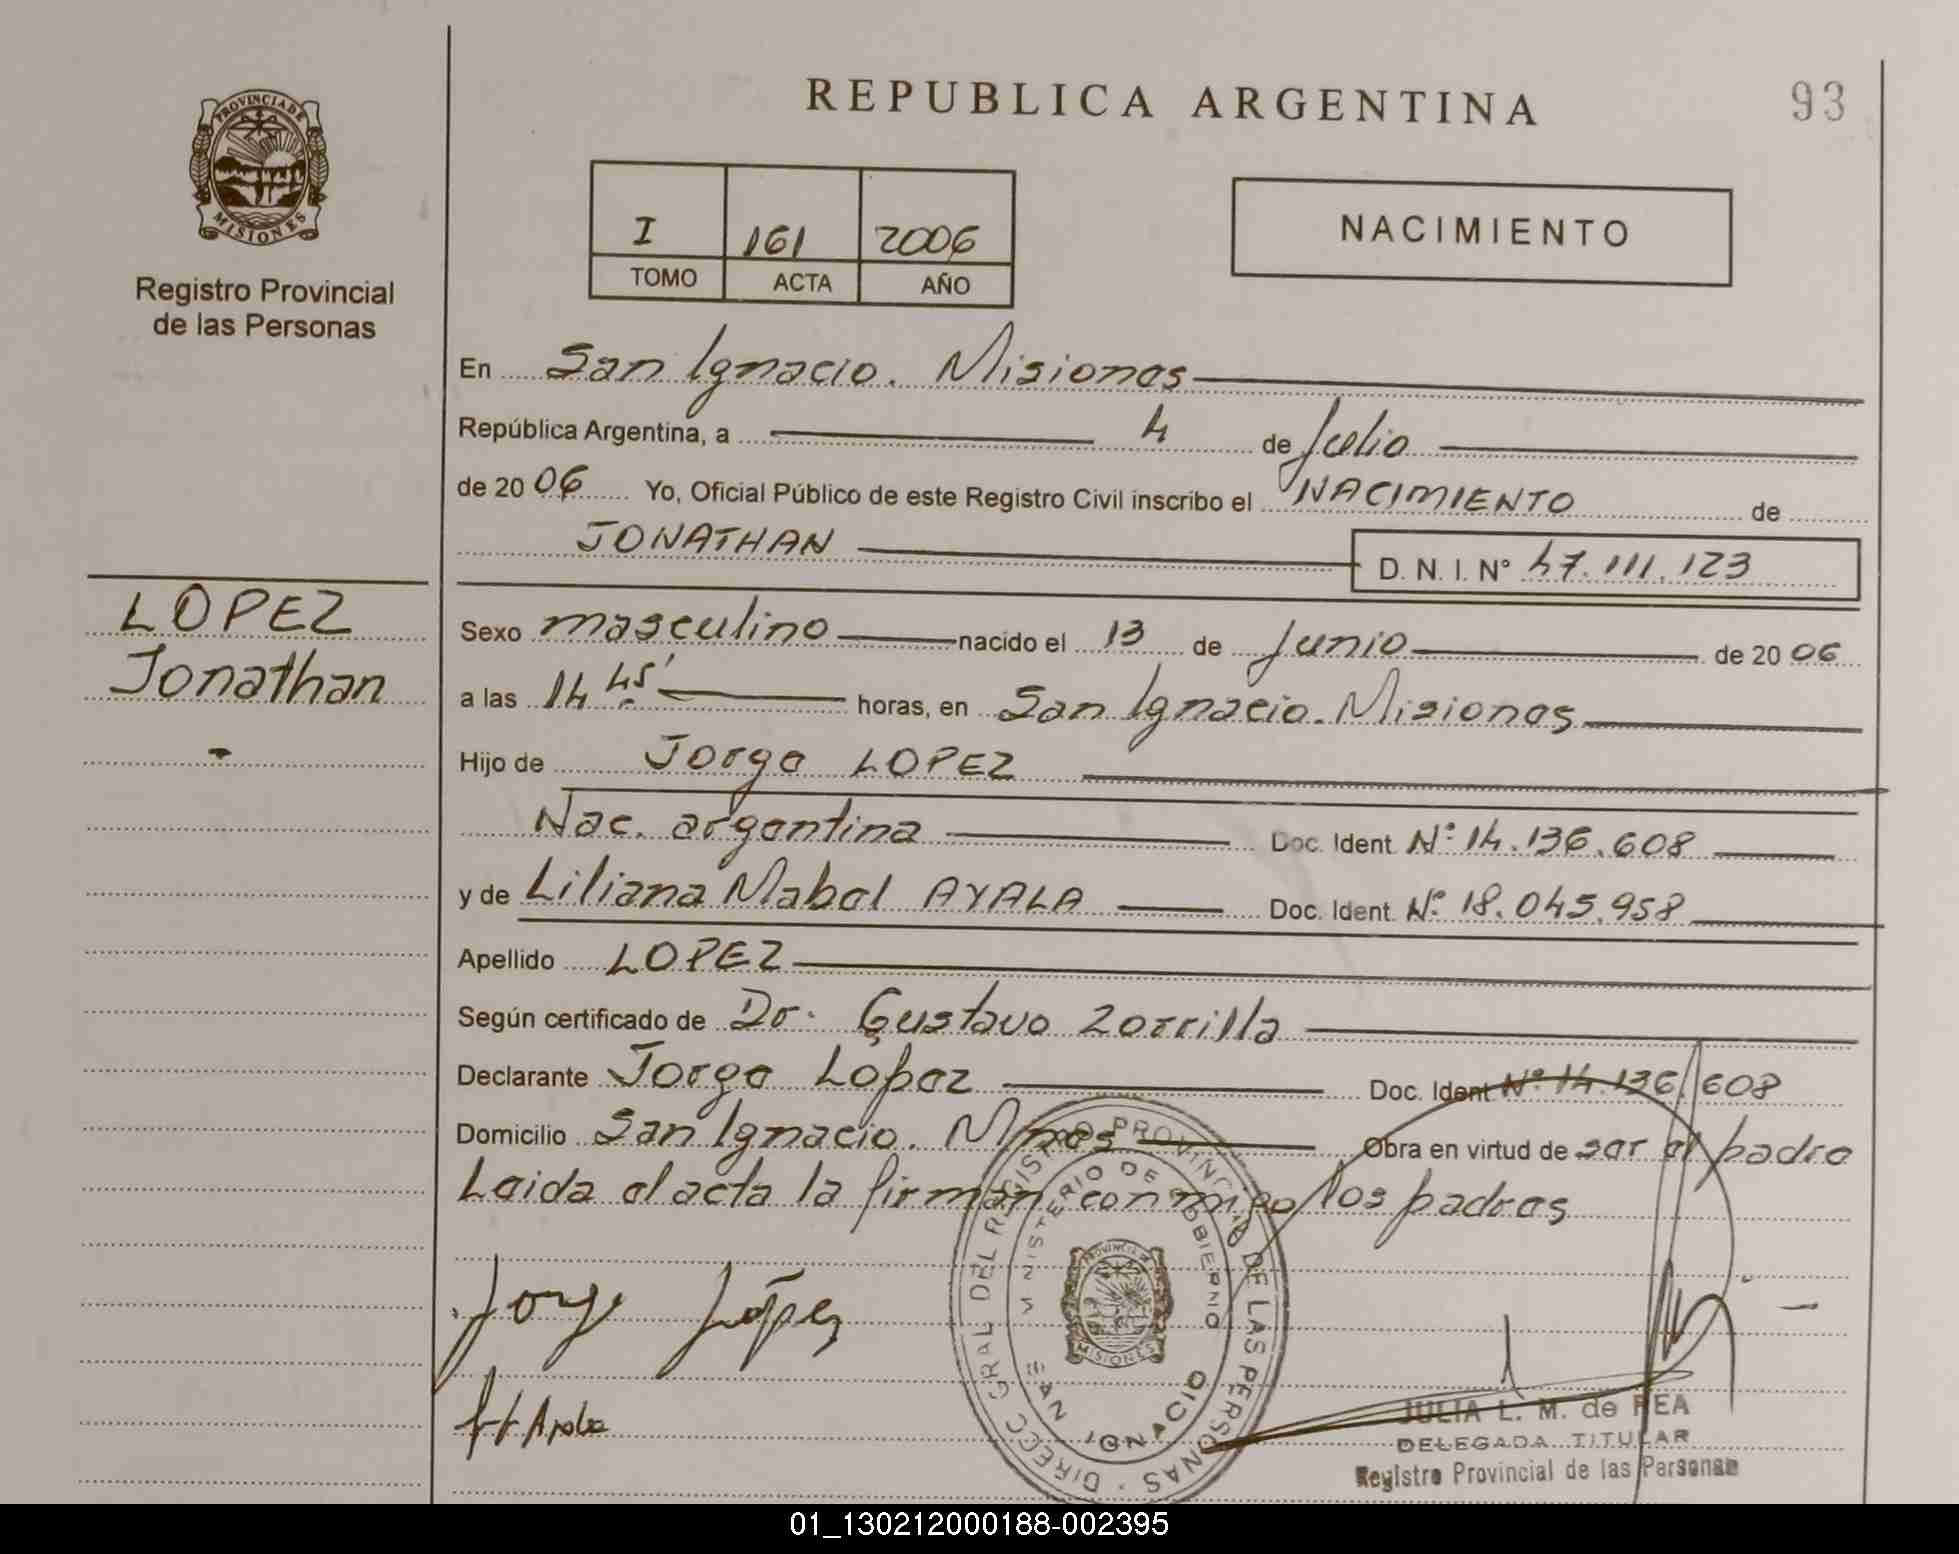 REPUBLICA ARGENTINA
93
PROVINCIA DE
MISIONES
Registro Provincial
de las Personas
I 161 2006
TOMO ACTA AÑO
NACIMIENTO
En San Ignacio. Misiones
República Argentina, a 4 de Julio
de 20 06 Yo, Oficial Público de este Registro Civil inscribo el NACIMIENTO de
JONATHAN D. N. I. N° 47.111.123
LOPEZ
Jonathan
Sexo masculino nacido el 13 de Junio de 20 06
a las 14 45' horas, en San Ignacio. Misiones
Hijo de Jorge LOPEZ
Nac. argentina Doc. Ident. N° 14.136.608
y de Liliana Mabel AYALA Doc. Ident. N° 18.045.958
Apellido LOPEZ
Según certificado de Dr. Gustavo Zorrilla
Declarante Jorge López Doc. Ident N° 14.136.608
Domicilio San Ignacio. Mnes Obra en virtud de ser el padre
Leida el acta la firman conmigo los padres
Jorge López
Ayala
DIRECC GRAL DEL REGISTRO PROVINCIAL DE LAS PERSONAS
MINISTERIO DE GOBIERNO
PROVINCIA DE
MISIONES
SAN IGNACIO
JULIA L. M. de REA
DELEGADA TITULAR
Registro Provincial de las Personas
01_130212000188-002395